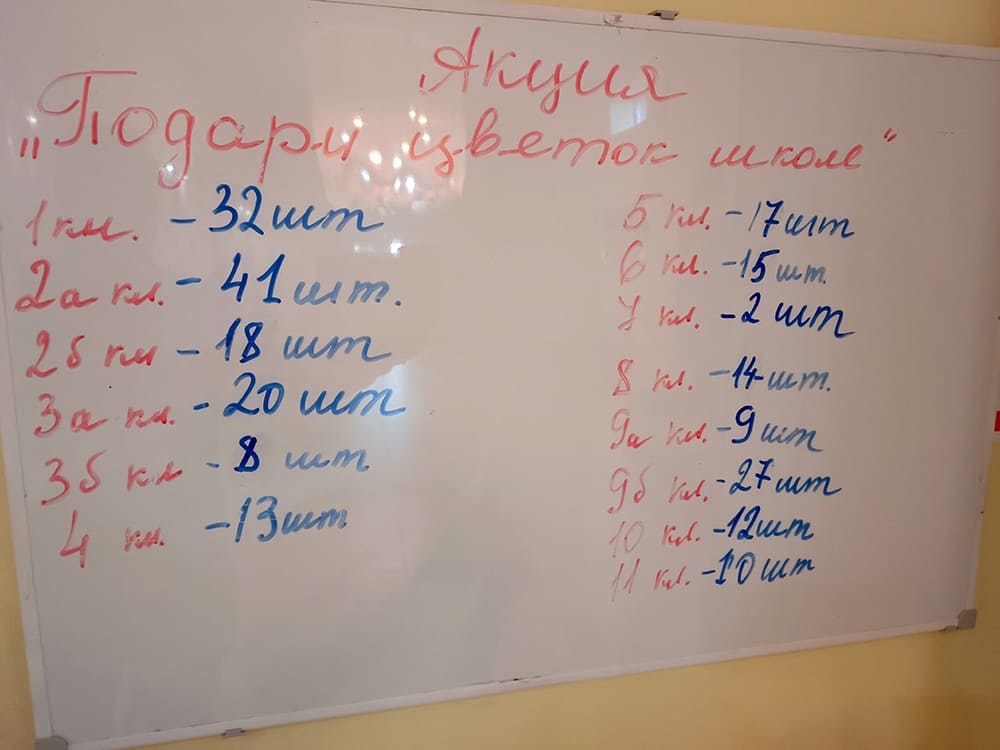 Акция
„Подари цветок школе"
1 кл. - 32 шт
2а кл. - 41 шт.
2б кл - 18 шт
3а кл. - 20 шт
3б кл - 8 шт
4 кл. - 13 шт
5 кл. - 17 шт
6 кл. - 15 шт.
7 кл. - 2 шт
8 кл. - 14 шт.
9а кл. - 9 шт
9б кл. - 27 шт
10 кл. - 12 шт
11 кл. - 10 шт